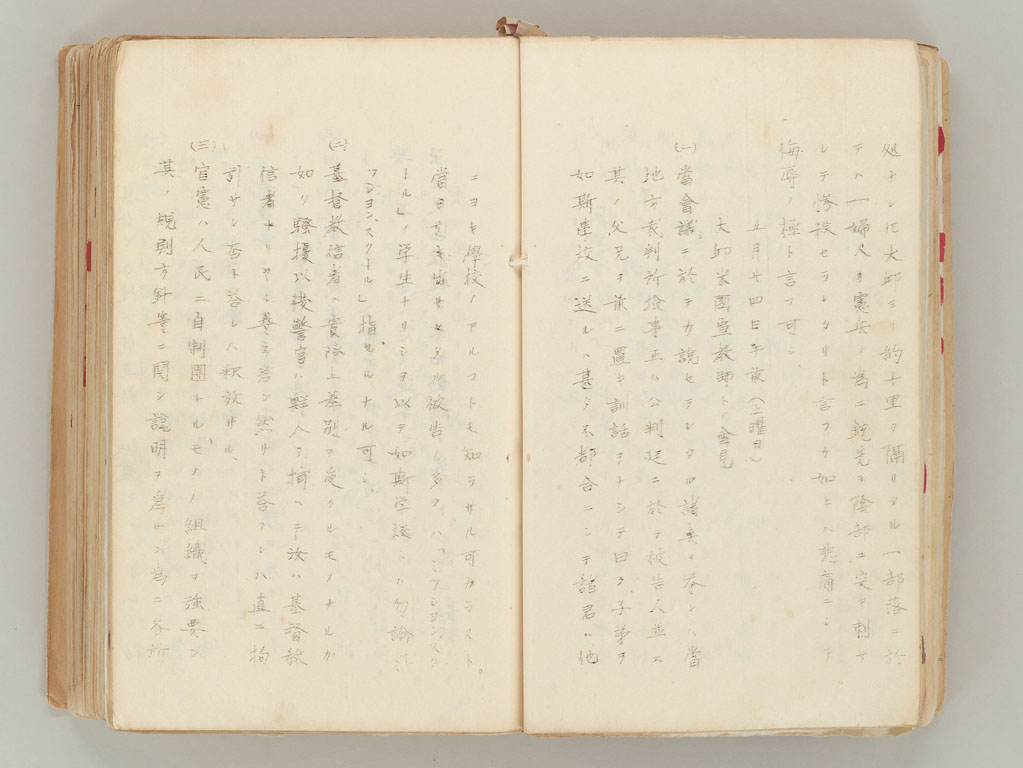 処ナシ比大邱ヨリ約十里ヲ隔リタル一部落ニ於
テハ一婦人カ憲兵ノ為ニ銃先ヲ陰部ニ突キ刺サ
レテ惨殺セラレタリト言フカ如キハ悲痛ニシテ
侮辱ノ極ト言フ可シ
五月廿四日午後(土曜日)
大邱米國宣教師ト會見
(一)當會議ニ於テカ説セラレタル諸夫ヲ ハ當
地方裁判所検事正ハ公判廷ニ於テ被告人並ニ
其ノ父兄ヲ前ニ置キ訓話ヲトシテ曰ク子弟ヲ
如斯學校ニ送ルハ甚タ不都合ニシテ諸君ハ他
ニヨキ學校ノアルコトモ知ラサル可カラスト。
當日引キ出サレタル被告ノ多クハ「ミツシヨンスク
トル」ノ学生ナリシヲ以テ如斯学校トハ勿論「ミ
ツシヨン、スクトル」指セルナル可シ
(二)基督教信者ハ實際上差別ヲ受クルモノナルカ
如リ騒擾以後警官ハ鮮人ヲ捕ヘテ汝ハ基督教
信者ナリヤト尋ネ若シ然リト答フレハ直ニ拘
引サレ否ト答レハ釈放サル、
(三)官憲ハ人民ニ自制團トルモノノ組織ヲ強要シ
其ノ規則方針等ニ関シ説明ヲ為サン為ニ各所